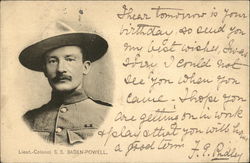 I hear tomorrow is your
birthday so send you
my best wishes. I was
sorry I could not
see you when you
came. I hope you
are getting on in work
& play & that you will have
a good term
Lieut.-Colonel R. S. S. BADEN-POWELL.